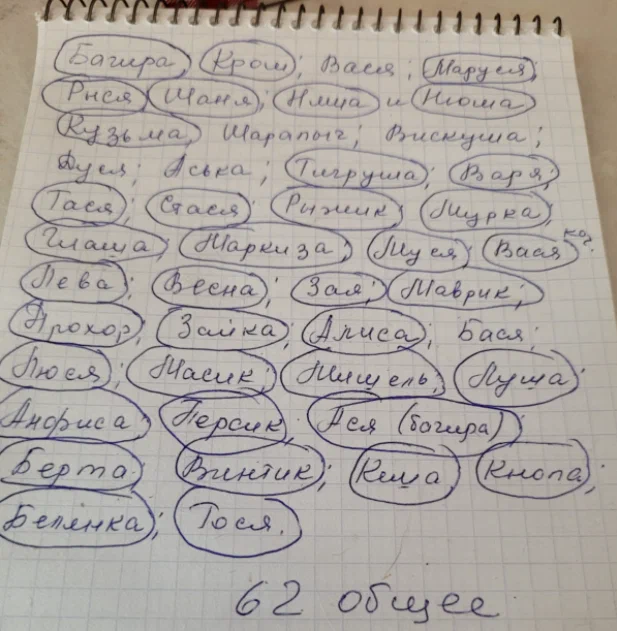 Багира; Кром; Вася; Маруся;
Рыся; Шаня; Няша и Нюша
Кузьма; Шарапыч; Вискуша;
Дуся; Аська; Тигруша; Варя;
Тася; Стася; Рыжик; Мурка;
Глаша; Маркиза; Муся; Вася
Лева; Весна; Зая; Маврик;
Прохор; Зайка; Алиса; Бася;
Люся; Масик; Мишель; Луша;
Анфиса; Персик; Ася (багира);
Берта; Винтик; Кеша Кнопа;
Белянка; Тося.
62 общее